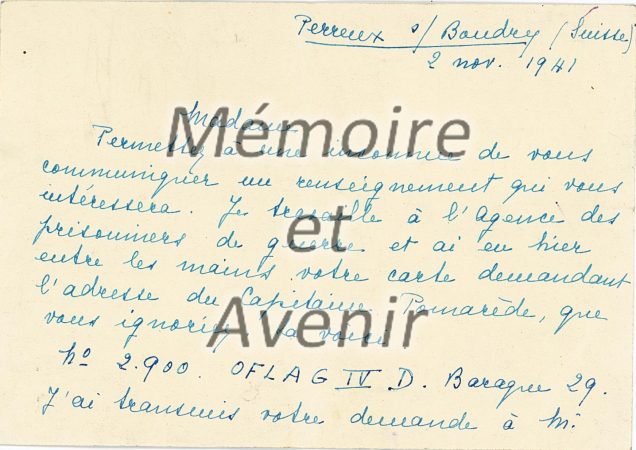 Perreux s/ Boudry (Suisse)
2 nov. 1941
Madame
Permettez à une inconnue de vous
communiquer un renseignement qui vous
intéressera. Je travaille à l'Agence des
prisonniers de guerre et ai eu hier
entre les mains votre carte demandant
l'adresse du Capitaine Pomarède, que
vous ignoriez. La voici
No 2.900. OFLAG IV D. Baraque 29.
J'ai transmis votre demande à M.
Mémoire
et
Avenir